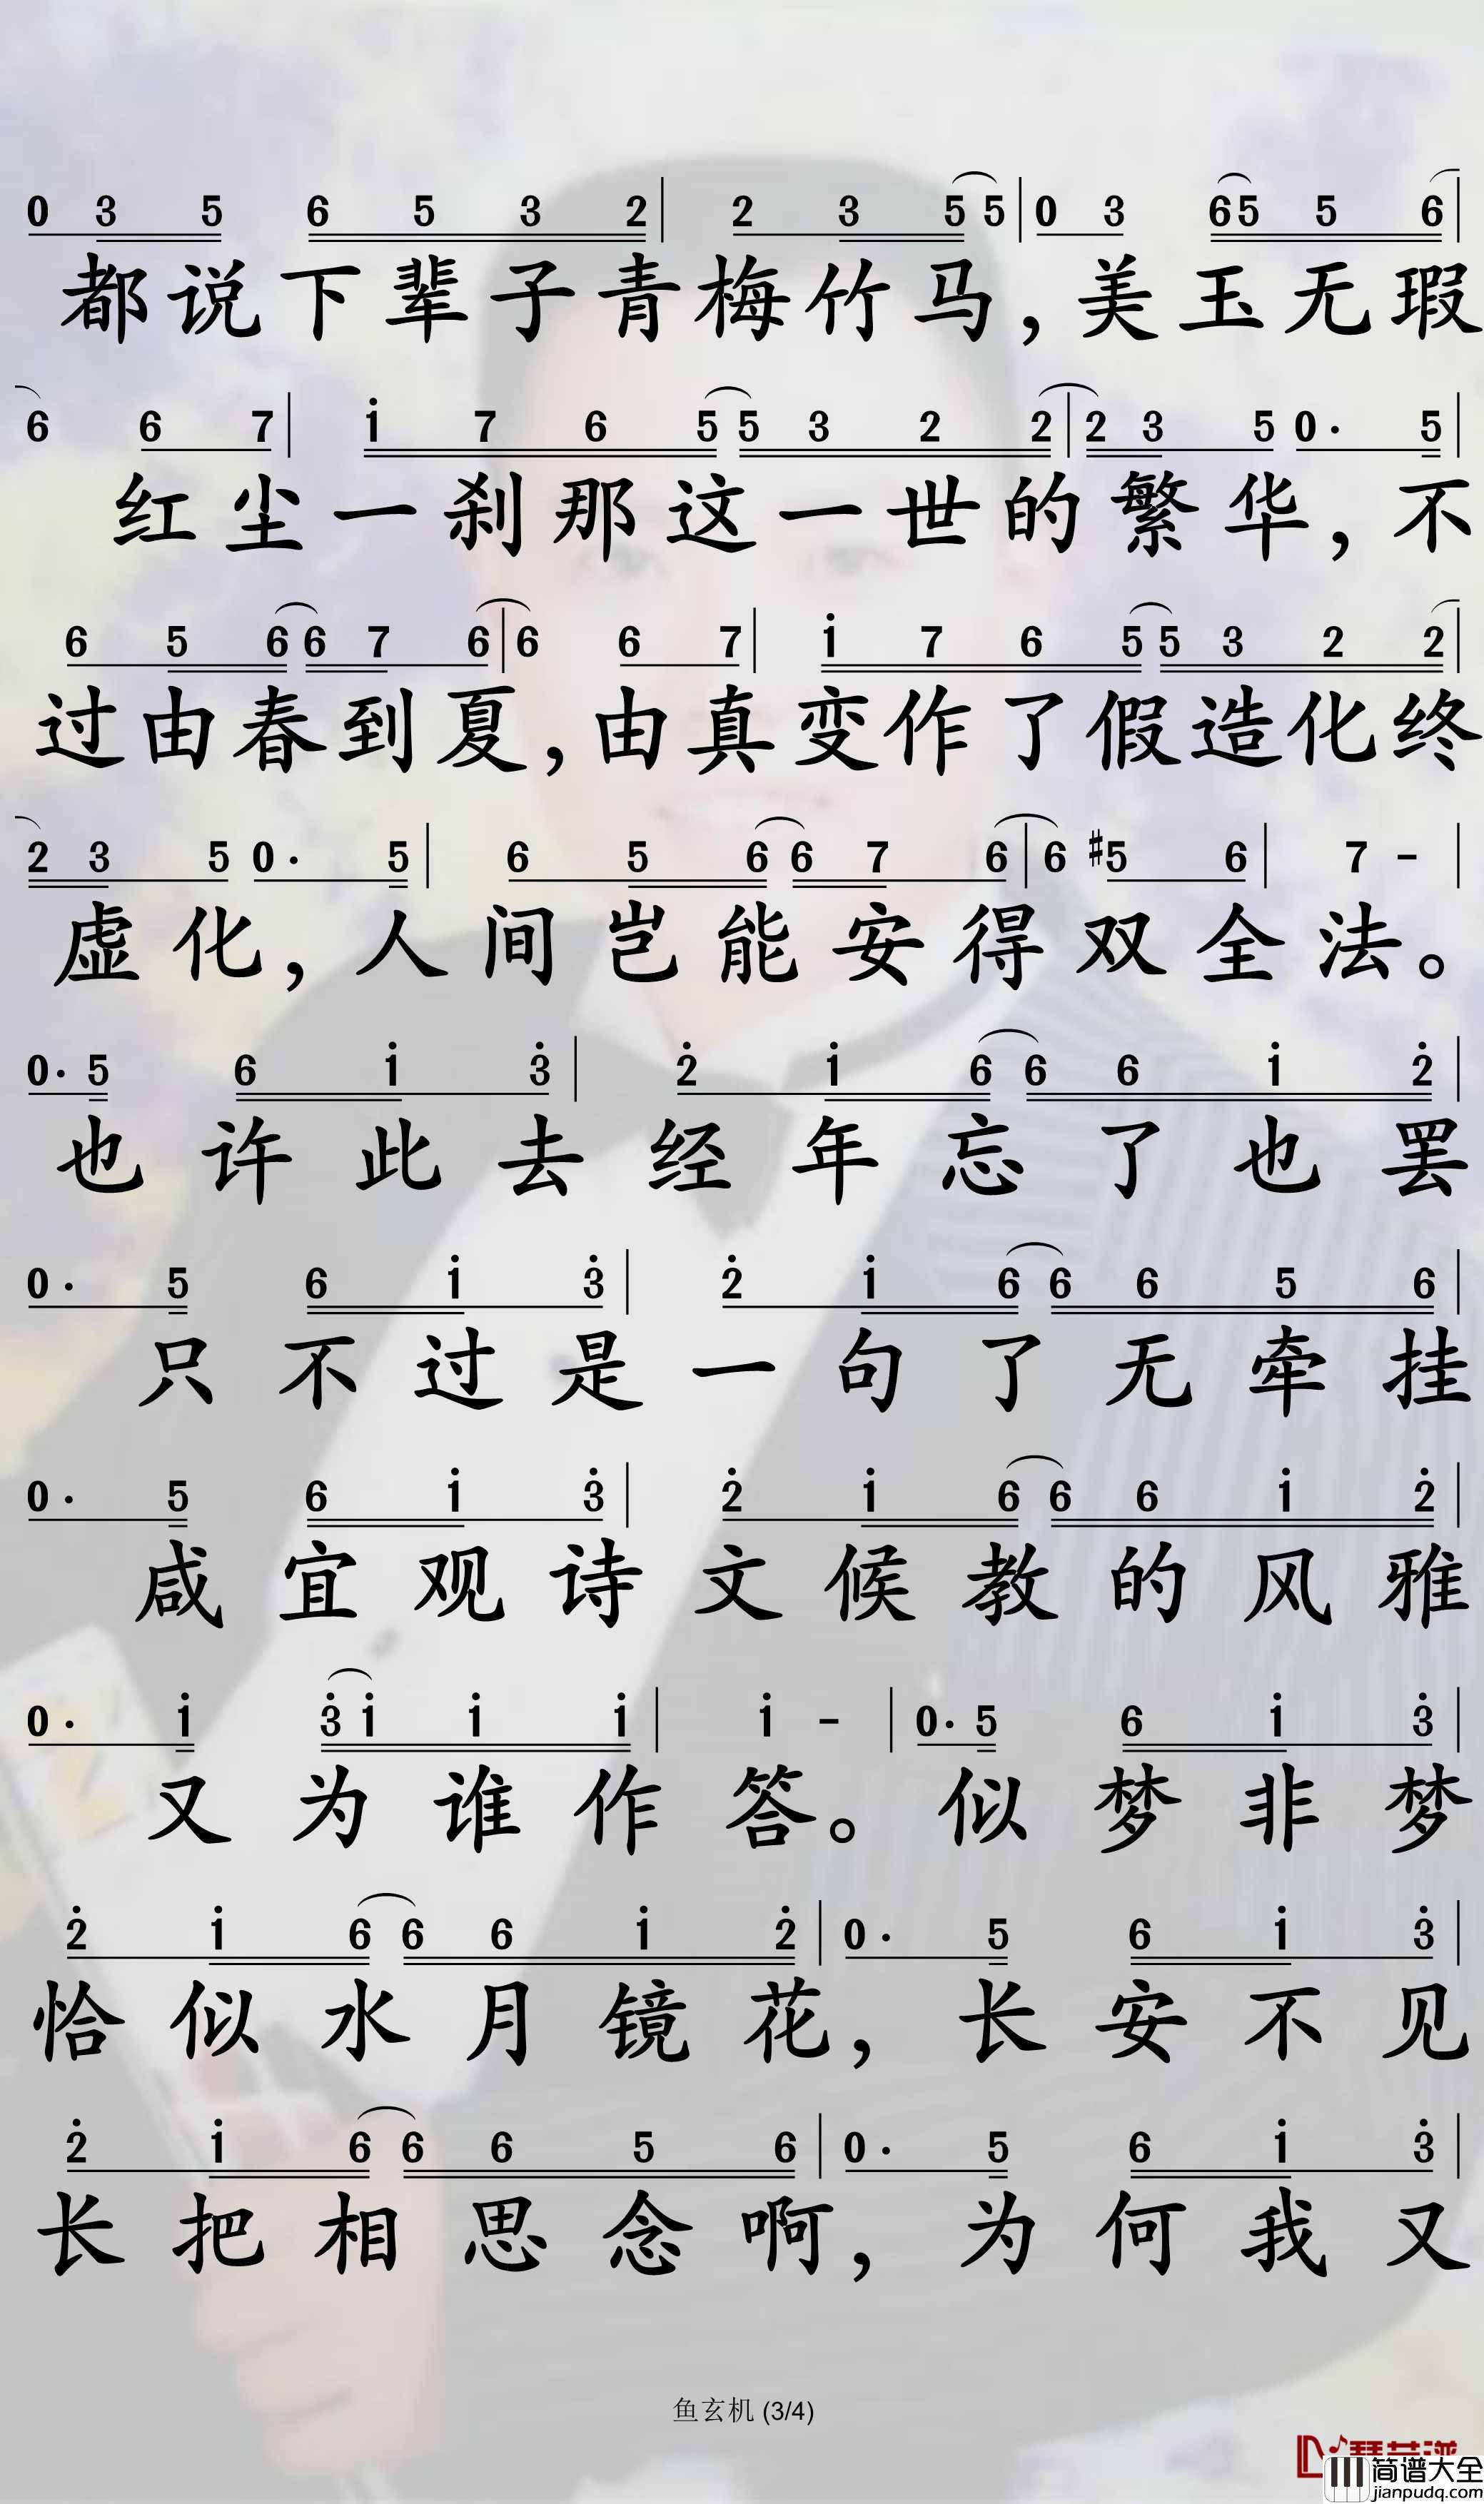 0 3 5 6 5 3 2 | 2 3 5 5 | 0 3 6 5 5 6 |
都说下辈子青梅竹马，美玉无瑕
6 6 7 | i 7 6 5 5 3 2 2 | 2 3 5 0· 5 |
红尘一刹那这一世的繁华，不
6 5 6 6 7 6 | 6 6 7 | i 7 6 5 5 3 2 2 |
过由春到夏，由真变作了假造化终
2 3 5 0· 5 | 6 5 6 6 7 6 | 6 #5 6 | 7 - |
虚化，人间岂能安得双全法。
0· 5 6 i 3̇ | 2̇ i 6 6 6 i 2̇ |
也许此去经年忘了也罢
0· 5 6 i 3̇ | 2̇ i 6 6 6 5 6 |
只不过是一句了无牵挂
0· 5 6 i 3̇ | 2̇ i 6 6 6 i 2̇ |
咸宜观诗文候教的风雅
0· i 3̇ i i i | i - | 0· 5 6 i 3̇ |
又为谁作答。似梦非梦
2̇ i 6 6 6 i 2̇ | 0· 5 6 i 3̇ |
恰似水月镜花，长安不见
2̇ i 6 6 6 5 6 | 0· 5 6 i 3̇ |
长把相思念啊，为何我又
鱼玄机 (3/4)
简谱大全
jianpudq.com